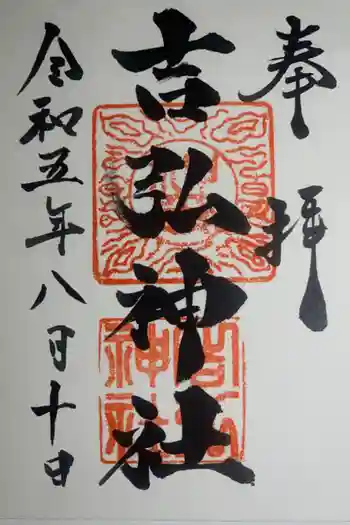 奉拝
吉弘神社
令和五年八月十日
吉弘神社